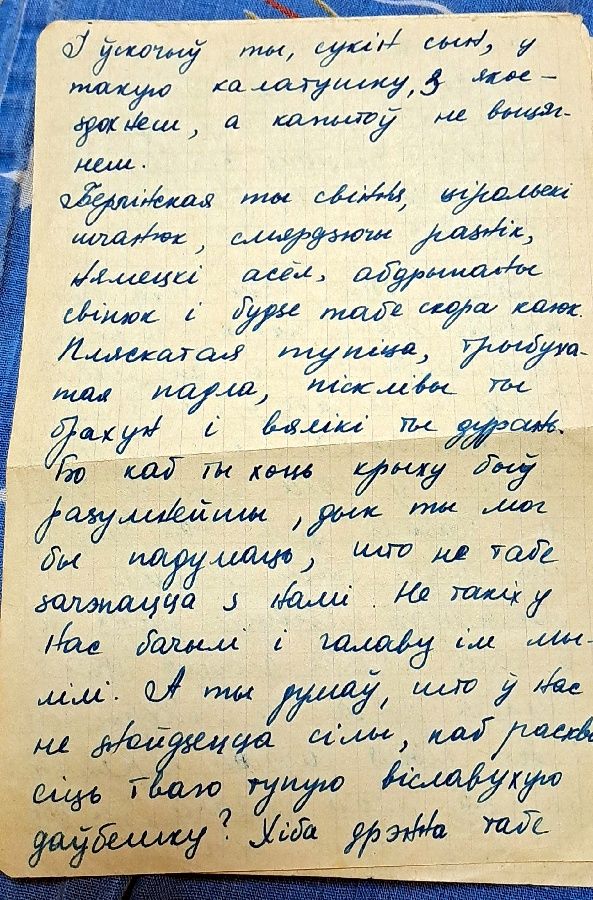 І ўскочыў ты, сукін сын, у
такую калатушку, з якое
здохнеш, а капытоў не выцяг-
неш.
Берлінская ты свіння, цірольскі
шчанюк, смярдзючы разнік,
нямецкі асёл, абдрыпаны
свінюк і будзе табе скора каюк.
Пляскатая тупіца, трыбуха-
тая падла, písклівы ты
брахун і вялікі ты дурань.
Бо каб ты хоць крыху быў
разумнейшы, дык ты мог
бы падумаць, што не табе
зачэпацца з намі. Не такіх у
нас бачылі і галаву ім мы-
лілі. А ты думаў, што ў нас
не знойдзецца сілы, каб расква
сіць тваю тупую віславухую
даўбешку? Хіба дрэнна табе